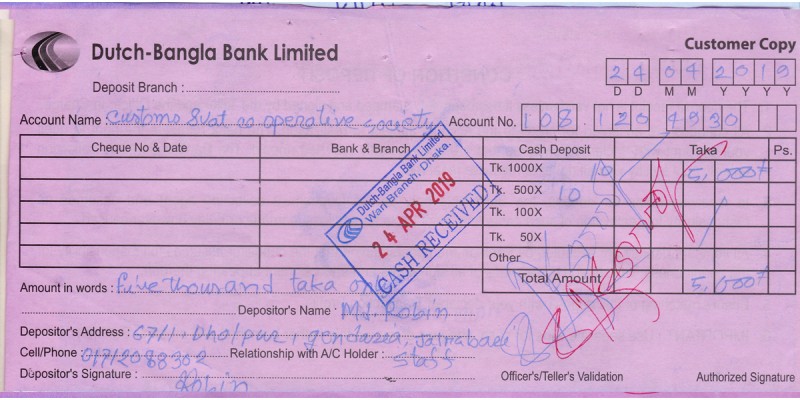 Dutch-Bangla Bank Limited
Customer Copy
24 04 2019
D D M M Y Y Y Y
Deposit Branch :
Account Name : Customs Vat co operative society Account No. 108 . 120 4930
Cheque No & Date Bank & Branch Cash Deposit Taka Ps.
Tk. 1000X 5,000
Tk. 500X 10
Tk. 100X
Tk. 50X
Other
Total Amount 5,000
Dutch-Bangla Bank Limited
Wari Branch, Dhaka.
24 APR 2019
CASH RECEIVED
Amount in words : five thousand taka only
Depositor's Name : Md. Robin
Depositor's Address : 67/1, Dholpur, gendaria, Jatrabari
Cell/Phone : Relationship with A/C Holder : staff
Depositor's Signature : Robin
Officer's/Teller's Validation Authorized Signature